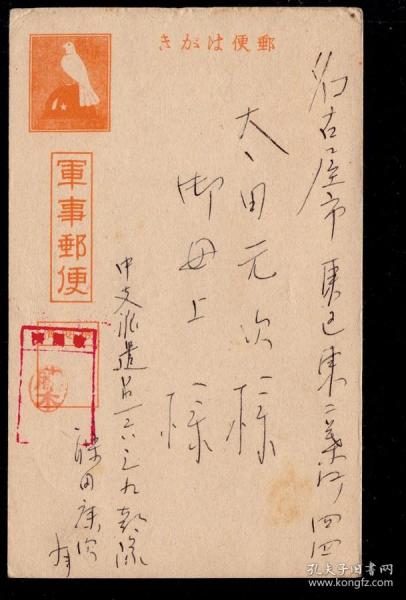 郵便はがき
名古屋市東区東二葉町四四
太田元次様
御母上様
軍事郵便
中支派遣呂一六三九部隊
康次
孔夫子旧书网
www.kongfz.com